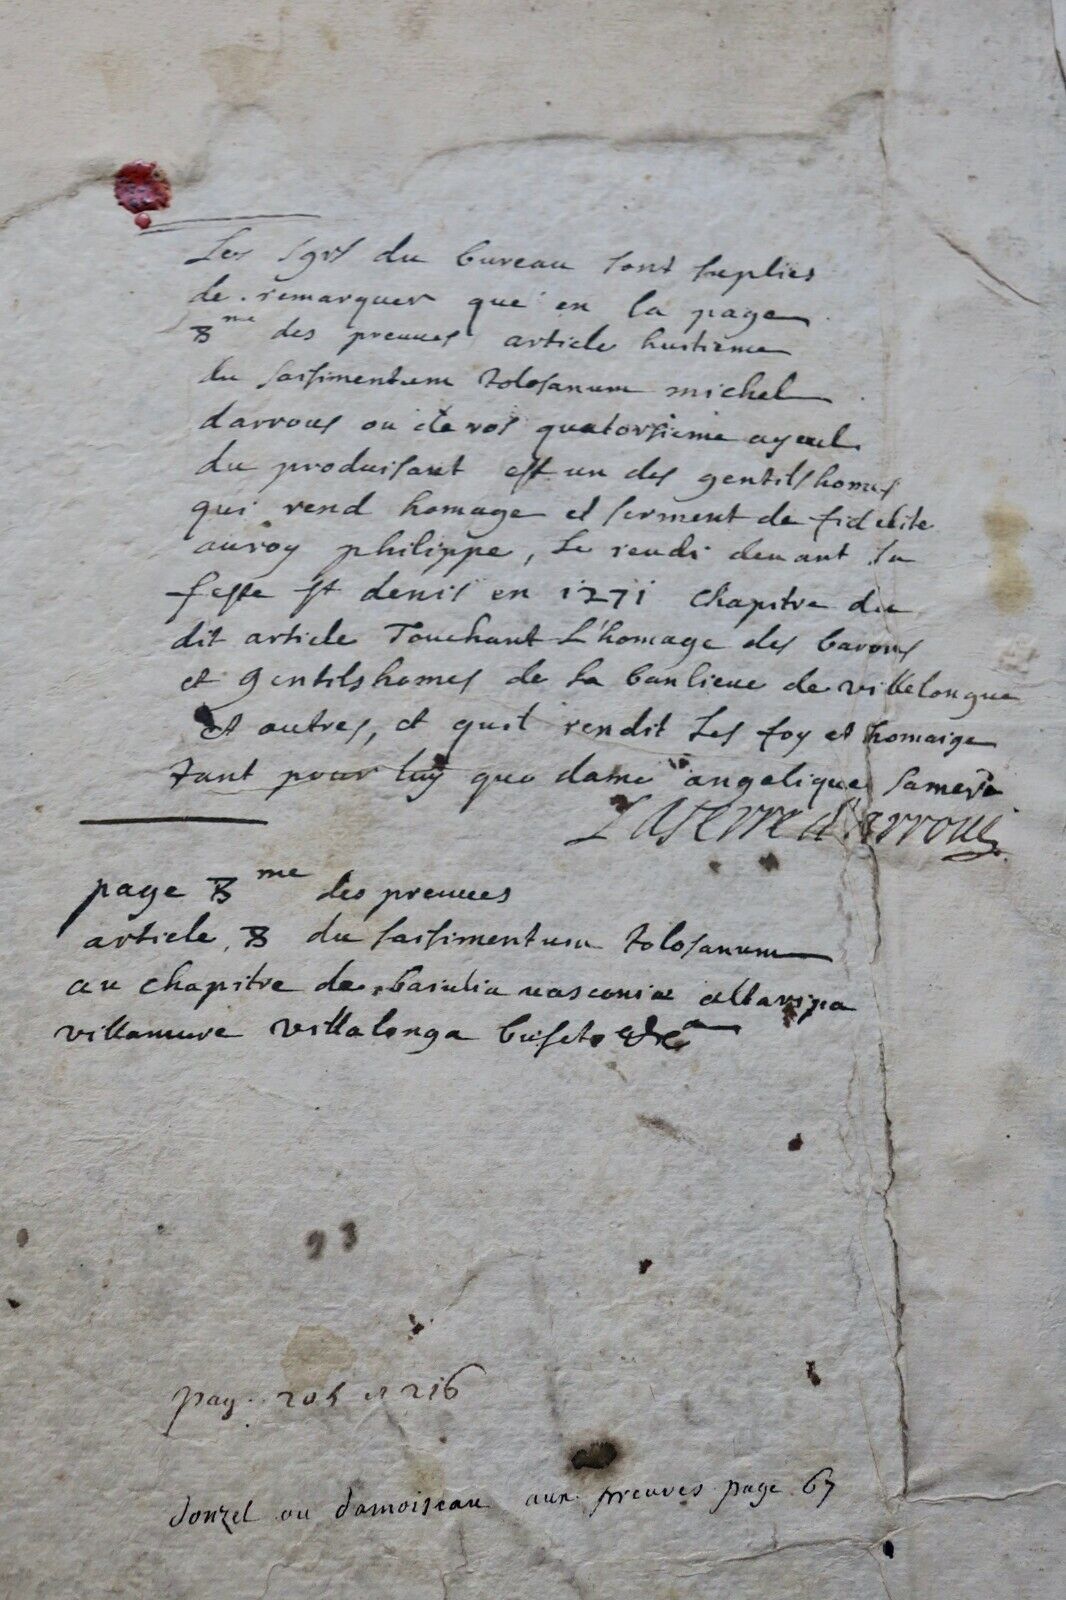 Les sgrs du bureau sont suplies
de remarquer que en la page
8me des preuues article huitieme
du saisimentum tolosanum michel
darrous ou de ros quatorsieme ayeul
du produisant est un des gentilshomes
qui rend homage et serment de fidelite
au roy philippe, le jeudi deuant la
feste st denis en 1271 chapitre du
dit article Touchant L'homage des barons
et gentilshomes de la banlieue de villelongue
et autres, et quil rendit les foy et homaige
tant pour luy que dame angelique sa mere
Laserre d'arrous
page 8me des preuues
article 8 du saisimentum tolosanum
au chapitre de baiulia uasconiae altaripa
villamure villalonga buseto &c
93
pag. 205 et 216
donzel ou damoiseau aux preuves page 67